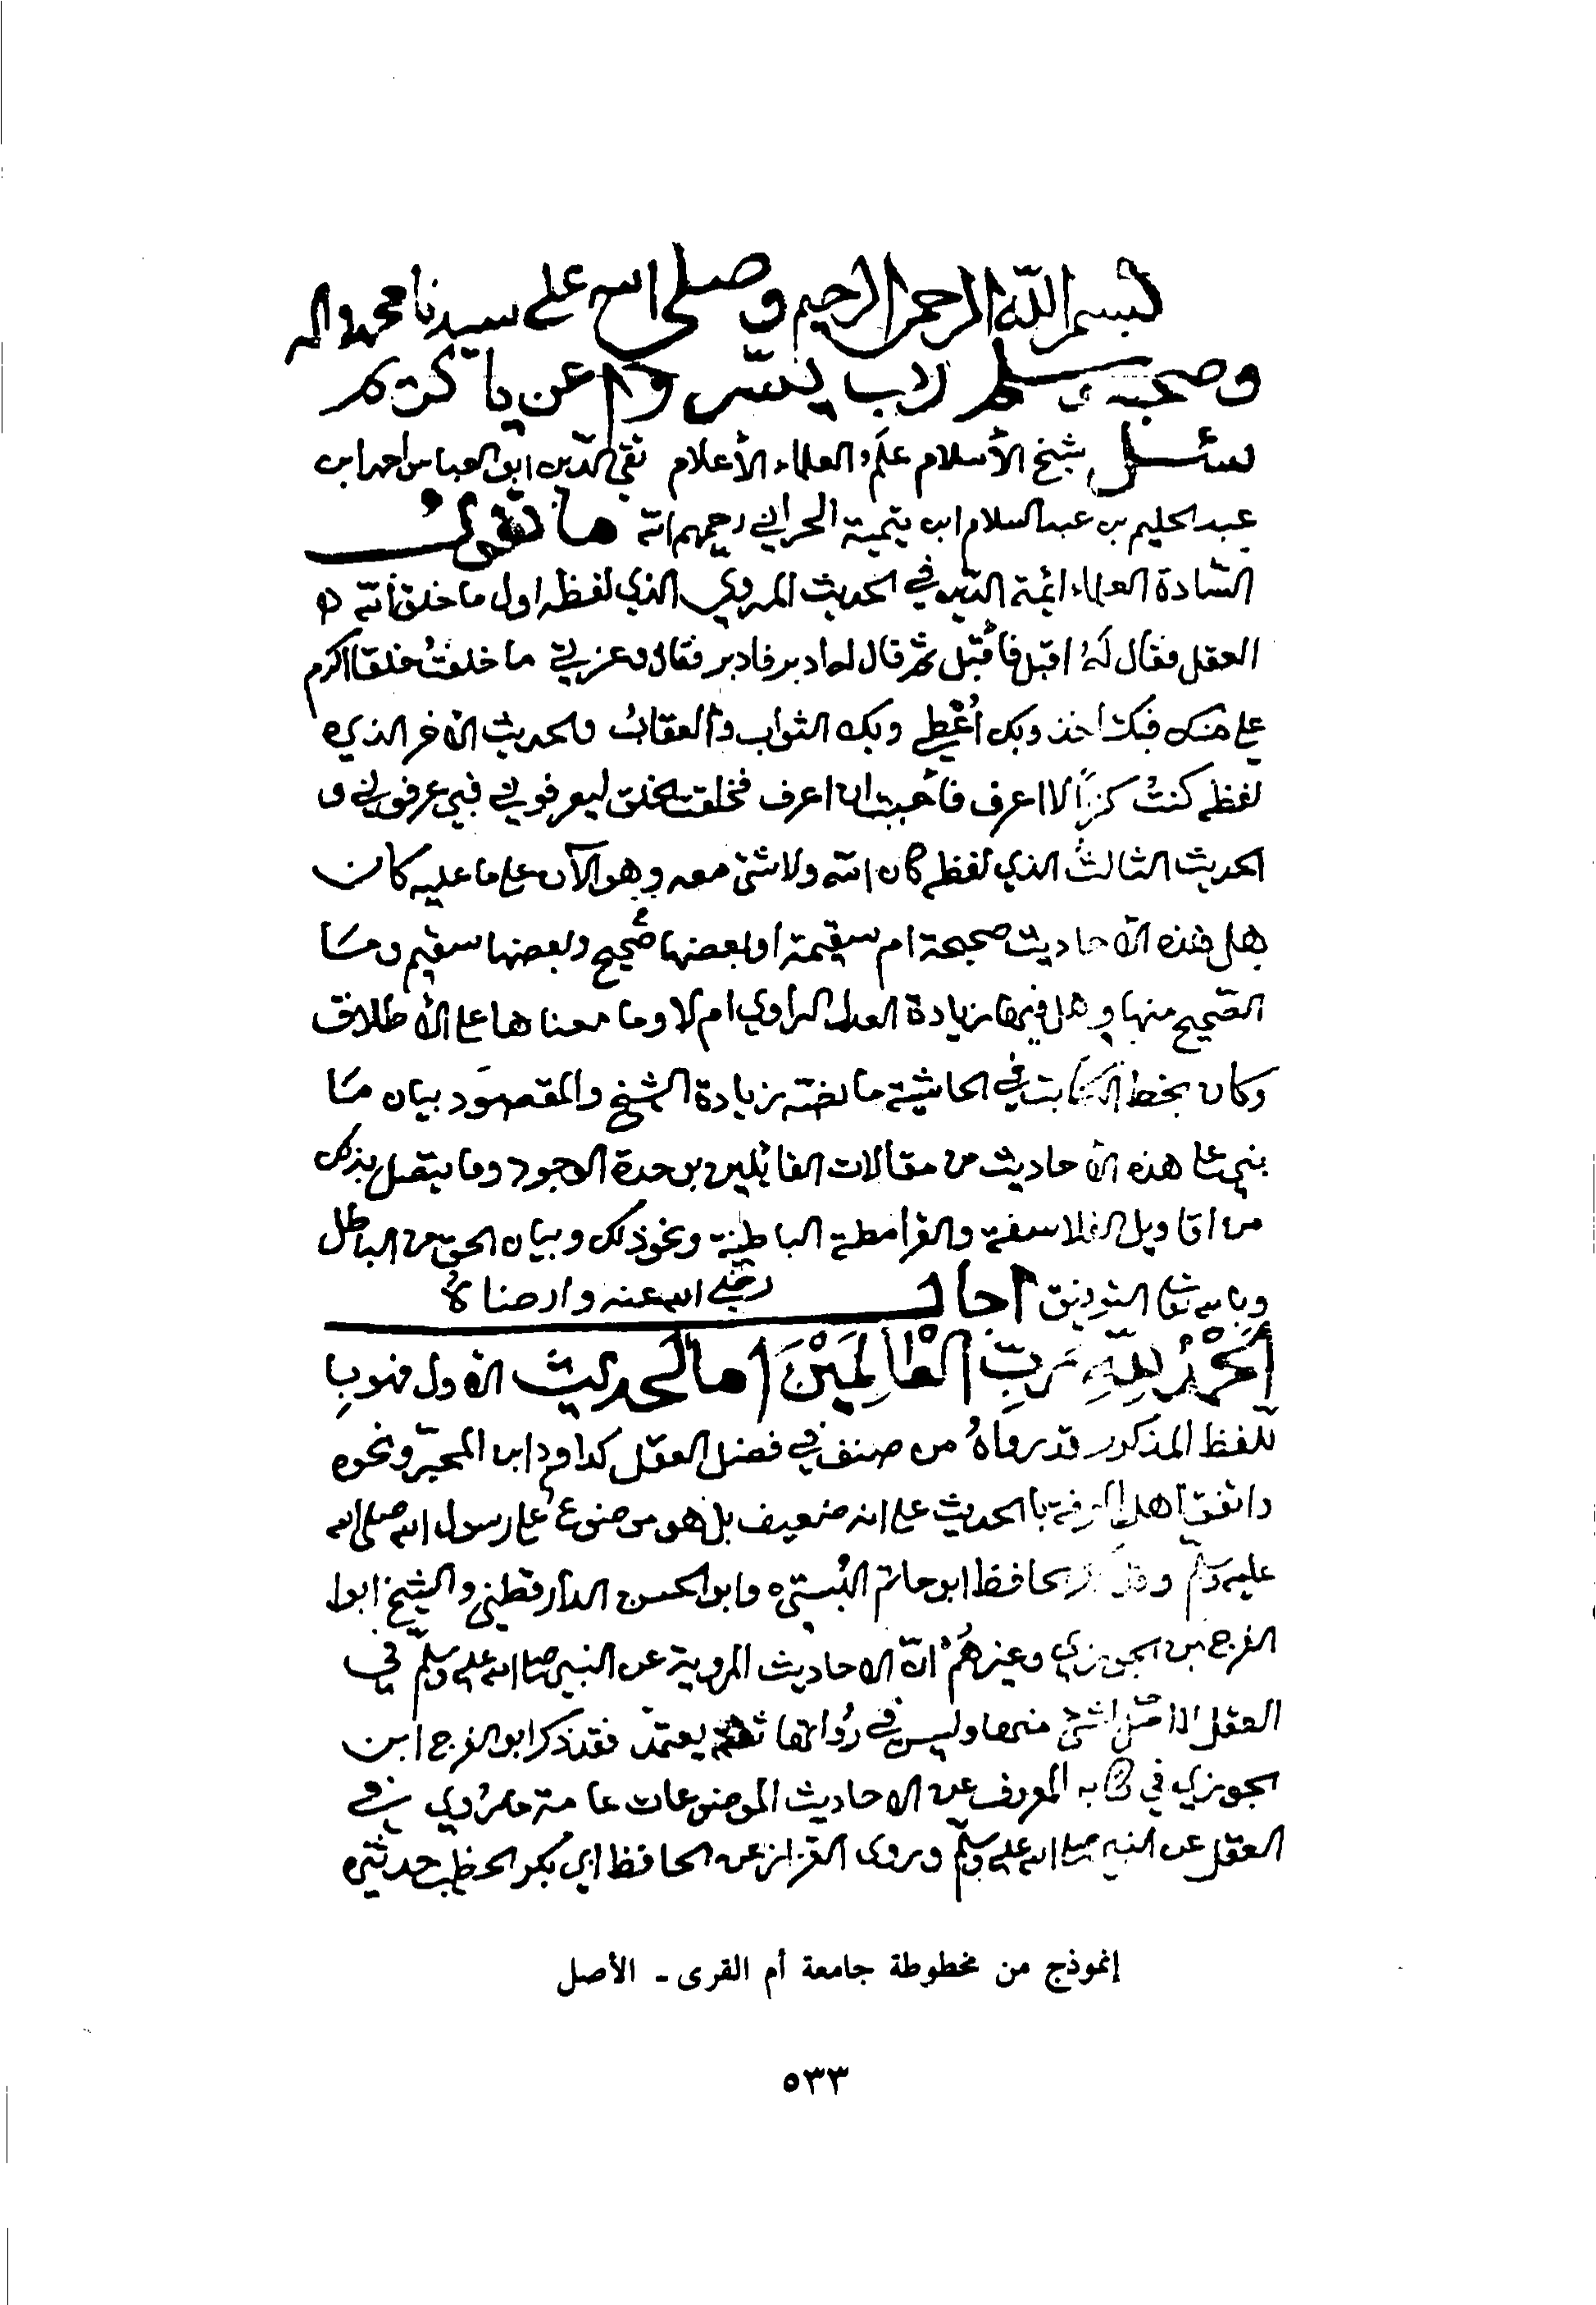 بسم الله الرحمن الرحيم وصلى الله على سيدنا محمد واله
وصحبه وسلم رب يسر واعن يا كريم
سئل شيخ الأسلام علم العلماء الأعلام تقي الدين ابو العباس احمد ابن
عبد الحليم بن عبد السلام ابن تيمية الحراني رحمهم الله ما تقول
السّادة العلماء ائمة الدّين في الحديث المروي الذي لفظه اول ما خلق الله
العقل فقال لهُ اقبل فأقبل ثم قال له ادبر فادبر فقال وعزتي ما خلقتُ خلقا اكرم
علي منك فبك أخذ وبك أُعْطي وبك الثواب والعقابُ والحديث الأخر الذي
لفظه كنتُ كنزاً لا اعرف فأحببت ان اعرف فخلقت الخلق ليعرفوني فبي عرفوني و
الحديث الثالث الذي لفظه كان الله ولا شئ معه وهو الآن على ما عليه كان
هل هذه الأحاديث صحيحة ام سقيمة او بعضها صحيح وبعضها سقيم وما
الصّحيح منها وهل فيها زيادة العدل الراوي ام لا وما معناها على الأطلاق
وكان بخط الكاتب في الحاشية ما نصّه زيادة الشيخ والمقصود بيان ما
بني على هذه الأحاديث من مقالات القائلين بوحدة الوجود وما يتصل بذلك
من اقاويل الفلاسفة والقرامطة الباطنية ونحو ذلك وبيان الحق من الباطل
وبالله تعالى التوفيق اجاب رضي الله عنه وارضاهُ
اَلحَمْدُ لِلّهِ رَبِّ الْعَالَمِيْنَ اما الحديث الأول فهو با
للفظ المذكور قد رواهُ من صنف في فضل العقل كداود ابن المحبّر ونحوه
واتفق اهل المعرفة بالحديث على انه ضعيف بل هو موضوع على رسول الله صلى الله
عليه وسلم وقد ذكر الحافظ ابو حاتم البُستي وابو الحسن الدارقطني والشيخ ابوا
الفرج بن الجوزي وغيرهُمْ انّ الاحاديث المروية عن النبي صلى الله عليه وسلّم في
العقل لا اصل لشئ منها وليس في رُواتها ثقة يعتمد فقد ذكر ابو الفرج ابن
الجوزي في كتابه المعروف عن الاحاديث الموضوعات عامة ما رُوي في
العقل عن النبي صلى الله عليه وسلّم وروى القزاز عن الحافظ ابي بكر الخطيب حدثني
إنموذج من مخطوطة جامعة أم القرى - الأصل
٥٣٣